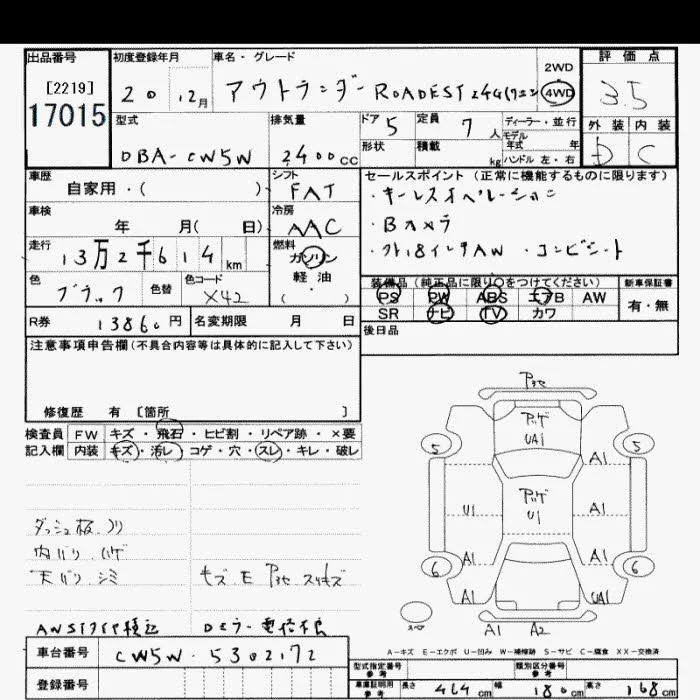 出品番号
[2219]
17015
初度登録年月
20 12月
車名・グレード
アウトランダー ROADEST 24G
2WD
4WD
評価点
3.5
外装 内装
D C
型式
DBA-CW5W
排気量
2400cc
ドア
5
形状
定員
7人
積載
kg
ディーラー・並行
モデル
年式 年
ハンドル 左・右
車歴
自家用・( )
シフト
FAT
車検
年 月( 日)
冷房
AAC
走行
13万2千614km
燃料
ガソリン
軽油
・( )
色
ブラック
色替
色コード
X42
R券
13860円
名変期限 月 日
セールスポイント(正常に機能するものに限ります)
・キーレスオペレーション
・Bカメラ
・外18インチAW ・コンビシート
装備品(純正品に限り○をつけてください)
PS PW ABS エアB AW
SR ナビ TV カワ
新車保証書
有・無
後日品
注意事項申告欄(不具合内容等は具体的に記入して下さい)
修復歴 有 [箇所 ]
検査員
記入欄
FW キズ・飛石・ヒビ割・リペア跡・×要
内装 キズ・汚レ・コゲ・穴・スレ・キレ・破レ
内バリ ハゲ
天バリ シミ
キズ E
スリキズ
UA1
U1
5 5
A1
U1
A1
A1 A1
6 6
A1 UA1
A1 A2
A-キズ E-エクボ U-凹み W-補修跡 S-サビ C-腐食 XX-交換済
車台番号
CW5W-5302172
登録番号
型式指定番号
参考
類別区分番号
参考
車庫証明用
参考
長さ 464cm 幅 180cm 高さ 168cm